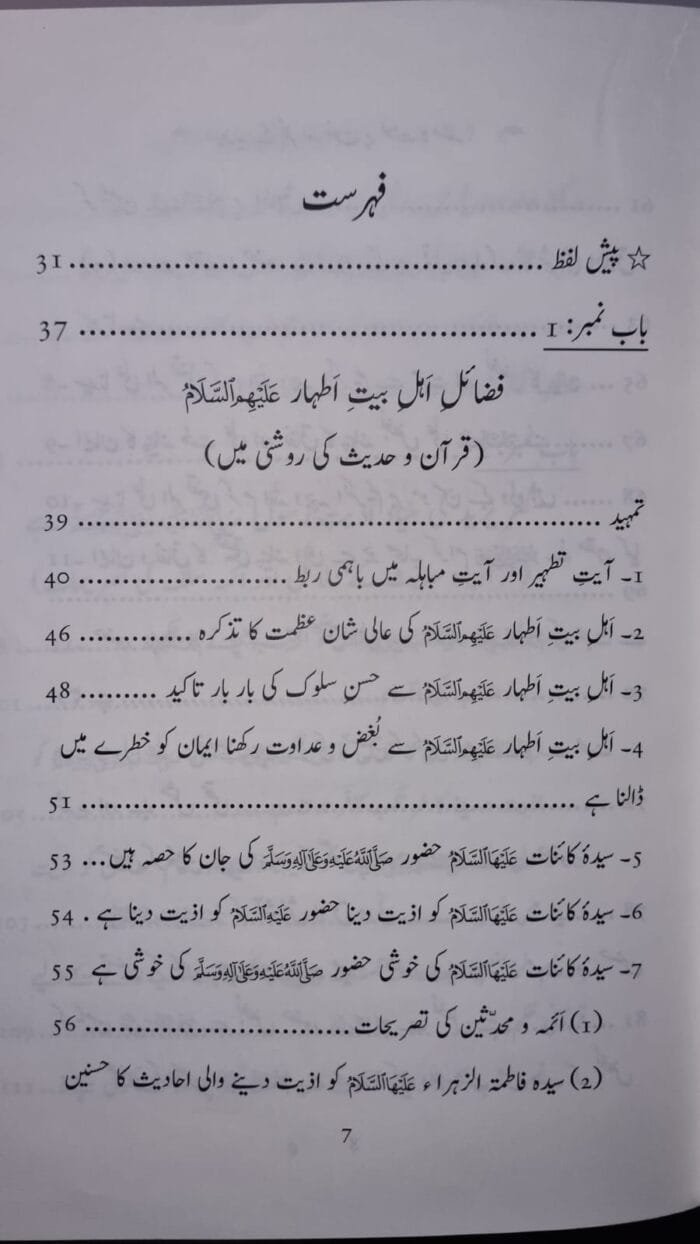 فہرست
☆ پیش لفظ ................................................ 31
باب نمبر: 1 ................................................ 37
فضائلِ اَہلِ بیتِ اَطہار عَلَيْهِمُ ٱلسَّلَامُ
(قرآن و حدیث کی روشنی میں)
تمہید ................................................ 39
1۔ آیتِ تطہیر اور آیتِ مباہلہ میں باہمی ربط ..................... 40
2۔ اَہلِ بیتِ اَطہار عَلَيْهِمُ ٱلسَّلَامُ کی عالی شان عظمت کا تذکرہ ............ 46
3۔ اَہلِ بیتِ اَطہار عَلَيْهِمُ ٱلسَّلَامُ سے حسنِ سلوک کی بار بار تاکید ......... 48
4۔ اَہلِ بیتِ اَطہار عَلَيْهِمُ ٱلسَّلَامُ سے بُغض و عداوت رکھنا ایمان کو خطرے میں
ڈالنا ہے ................................................ 51
5۔ سیدۂ کائنات عَلَيْهَا ٱلسَّلَامُ حضور صَلَّى ٱللَّهُ عَلَيْهِ وَعَلَىٰ آلِهِ وَسَلَّمَ کی جان کا حصہ ہیں... 53
6۔ سیدۂ کائنات عَلَيْهَا ٱلسَّلَامُ کو اذیت دینا حضور عَلَيْهِ ٱلسَّلَامُ کو اذیت دینا ہے . 54
7۔ سیدۂ کائنات عَلَيْهَا ٱلسَّلَامُ کی خوشی حضور صَلَّى ٱللَّهُ عَلَيْهِ وَعَلَىٰ آلِهِ وَسَلَّمَ کی خوشی ہے 55
(1) اَئمہ و محدّثین کی تصریحات ........................... 56
(2) سیدہ فاطمۃ الزہراء عَلَيْهَا ٱلسَّلَامُ کو اذیت دینے والی احادیث کا حسنین
7